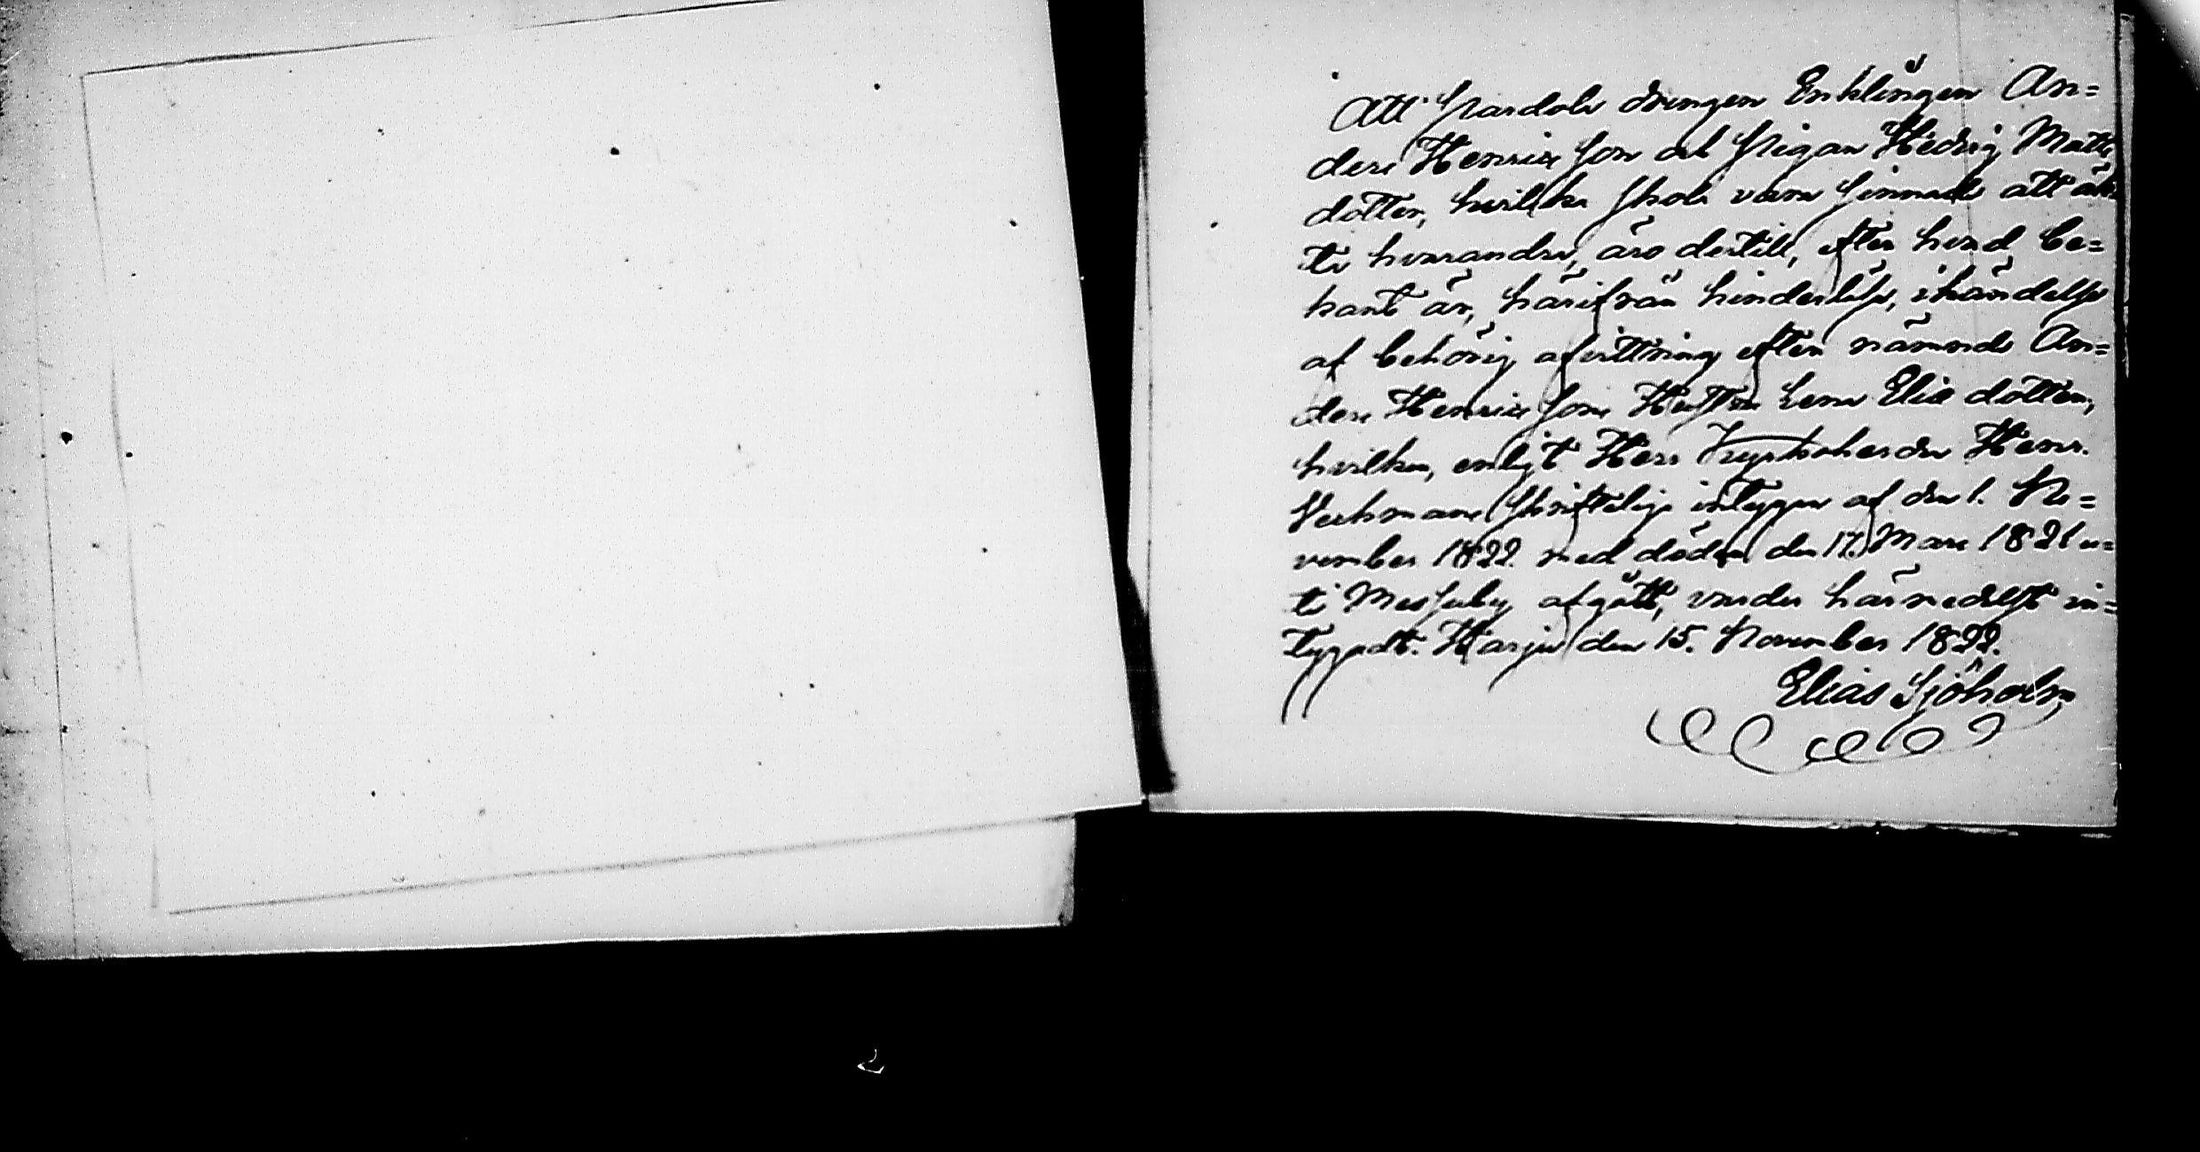 Att Pardola drengen Enklingen An=
ders Henrics son och Pigan Hedvig Matts
dotter, hvilka skola vara sinnade att äk=
ta hvarandra, äro dertill, efter hvad be=
kant är, härifrån hinderlöse, i händelse
af behörig afvittring efter nämnde An=
ders Henrics sons Hustru Lena Elias dotter,
hvilken, enligt Herr Kyrkoherden Henr.
skrifteliga intygan af den 1. No=
vember 1822. med döden den 17. Mars 1821 u=
ti Messuby afgått, varder härmedelst in=
tygadt. Harju den 15. November 1822.
Elias Sjöholm